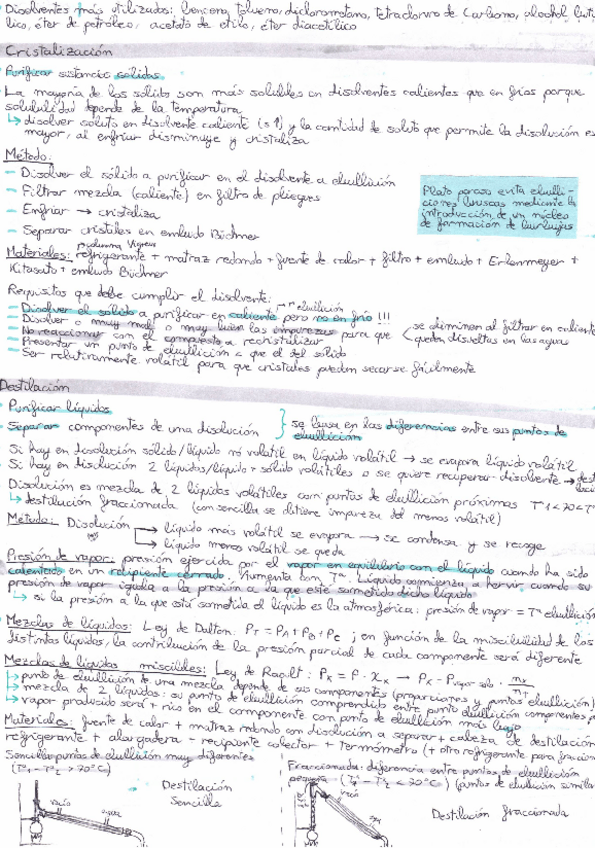 Disolventes más utilizados: benceno, tolueno, diclorometano, tetracloruro de Carbono, alcohol butí
lico, éter de petróleo, acetato de etilo, éter diacetílico
Cristalización
Purificar sustancias sólidas
La mayoría de los sólido son más solubles en disolventes calientes que en fríos porque
solubilidad depende de la temperatura
↳ disolver soluto en disolvente caliente (s↑) y la cantidad de soluto que permite la disolución es
mayor, al enfriar disminuye y cristaliza
Método:
- Disolver el sólido a purificar en el disolvente a ebullición
- Filtrar mezcla (caliente) en filtro de pliegues
- Enfriar → cristaliza
- Separar cristales en embudo Büchner
Plato poroso evita ebulli-
ciones bruscas mediante la
introducción de un núcleo
de formación de burbujas
columna Vigreux
Materiales: refrigerante + matraz redondo + fuente de calor + filtro + embudo + Erlenmeyer +
Kitasato + embudo Büchner
Requisitos que debe cumplir el disolvente:
Tª ebullición
- Disolver el sólido a purificar en caliente pero no en frío !!!
- Disolver o muy mal o muy bien las impurezas para que
se eliminen al filtrar en caliente
queden disueltas en las aguas
- No reaccionar con el compuesto a recristalizar
- Presentar un punto de ebullición < que el del sólido
- Ser relativamente volátil para que cristales puedan secarse fácilmente
Destilación
Purificar líquidos
Separar componentes de una disolución
se basa en las diferencias entre sus puntos de
ebullición
Si hay en disolución sólido/líquido no volátil en líquido volátil → se evapora líquido volátil
Si hay en disolución 2 líquidos/líquido + sólido volátiles o se quiere recuperar disolvente →
Disolución es mezcla de 2 líquidos volátiles con puntos de ebullición próximos
↳ destilación fraccionada (con sencilla se obtiene impureza del menos volátil)
Método: Disolución
→ líquido más volátil se evapora → se condensa y se recoge
→ líquido menos volátil se queda
Presión de vapor: presión ejercida por el vapor en equilibrio con el líquido cuando ha sido
calentado en un recipiente cerrado. Aumenta con Tª. Líquido comienza a hervir cuando su
presión de vapor iguala a la presión a la que esté sometido dicho líquido
↳ si la presión a la que está sometida el líquido es la atmosférica: presión de vapor = Tª ebullición
Mezclas de líquidos: Ley de Dalton: PT = PA + PB + PC ; en función de la miscibilidad de los
distintos líquidos, la contribución de la presión parcial de cada componente será diferente
Mezclas de líquidos miscibles: Ley de Raoult:
↳ punto de ebullición de una mezcla depende de sus componentes (proporciones y puntos ebullición)
↳ mezcla de 2 líquidos: su punto de ebullición comprendido entre punto ebullición componentes
↳ vapor producido será + rico en el componente con punto de ebullición más bajo
Materiales: fuente de calor + matraz redondo con disolución a separar + cabeza de destilación
refrigerante + alargadera - recipiente colector + termómetro (+ otro refrigerante para
Sencilla: puntos de ebullición muy diferentes
Destilación
Sencilla
agua
Fraccionada: diferencia entre puntos de ebullición
pequeña (puntos de ebullición
Destilación fraccionada